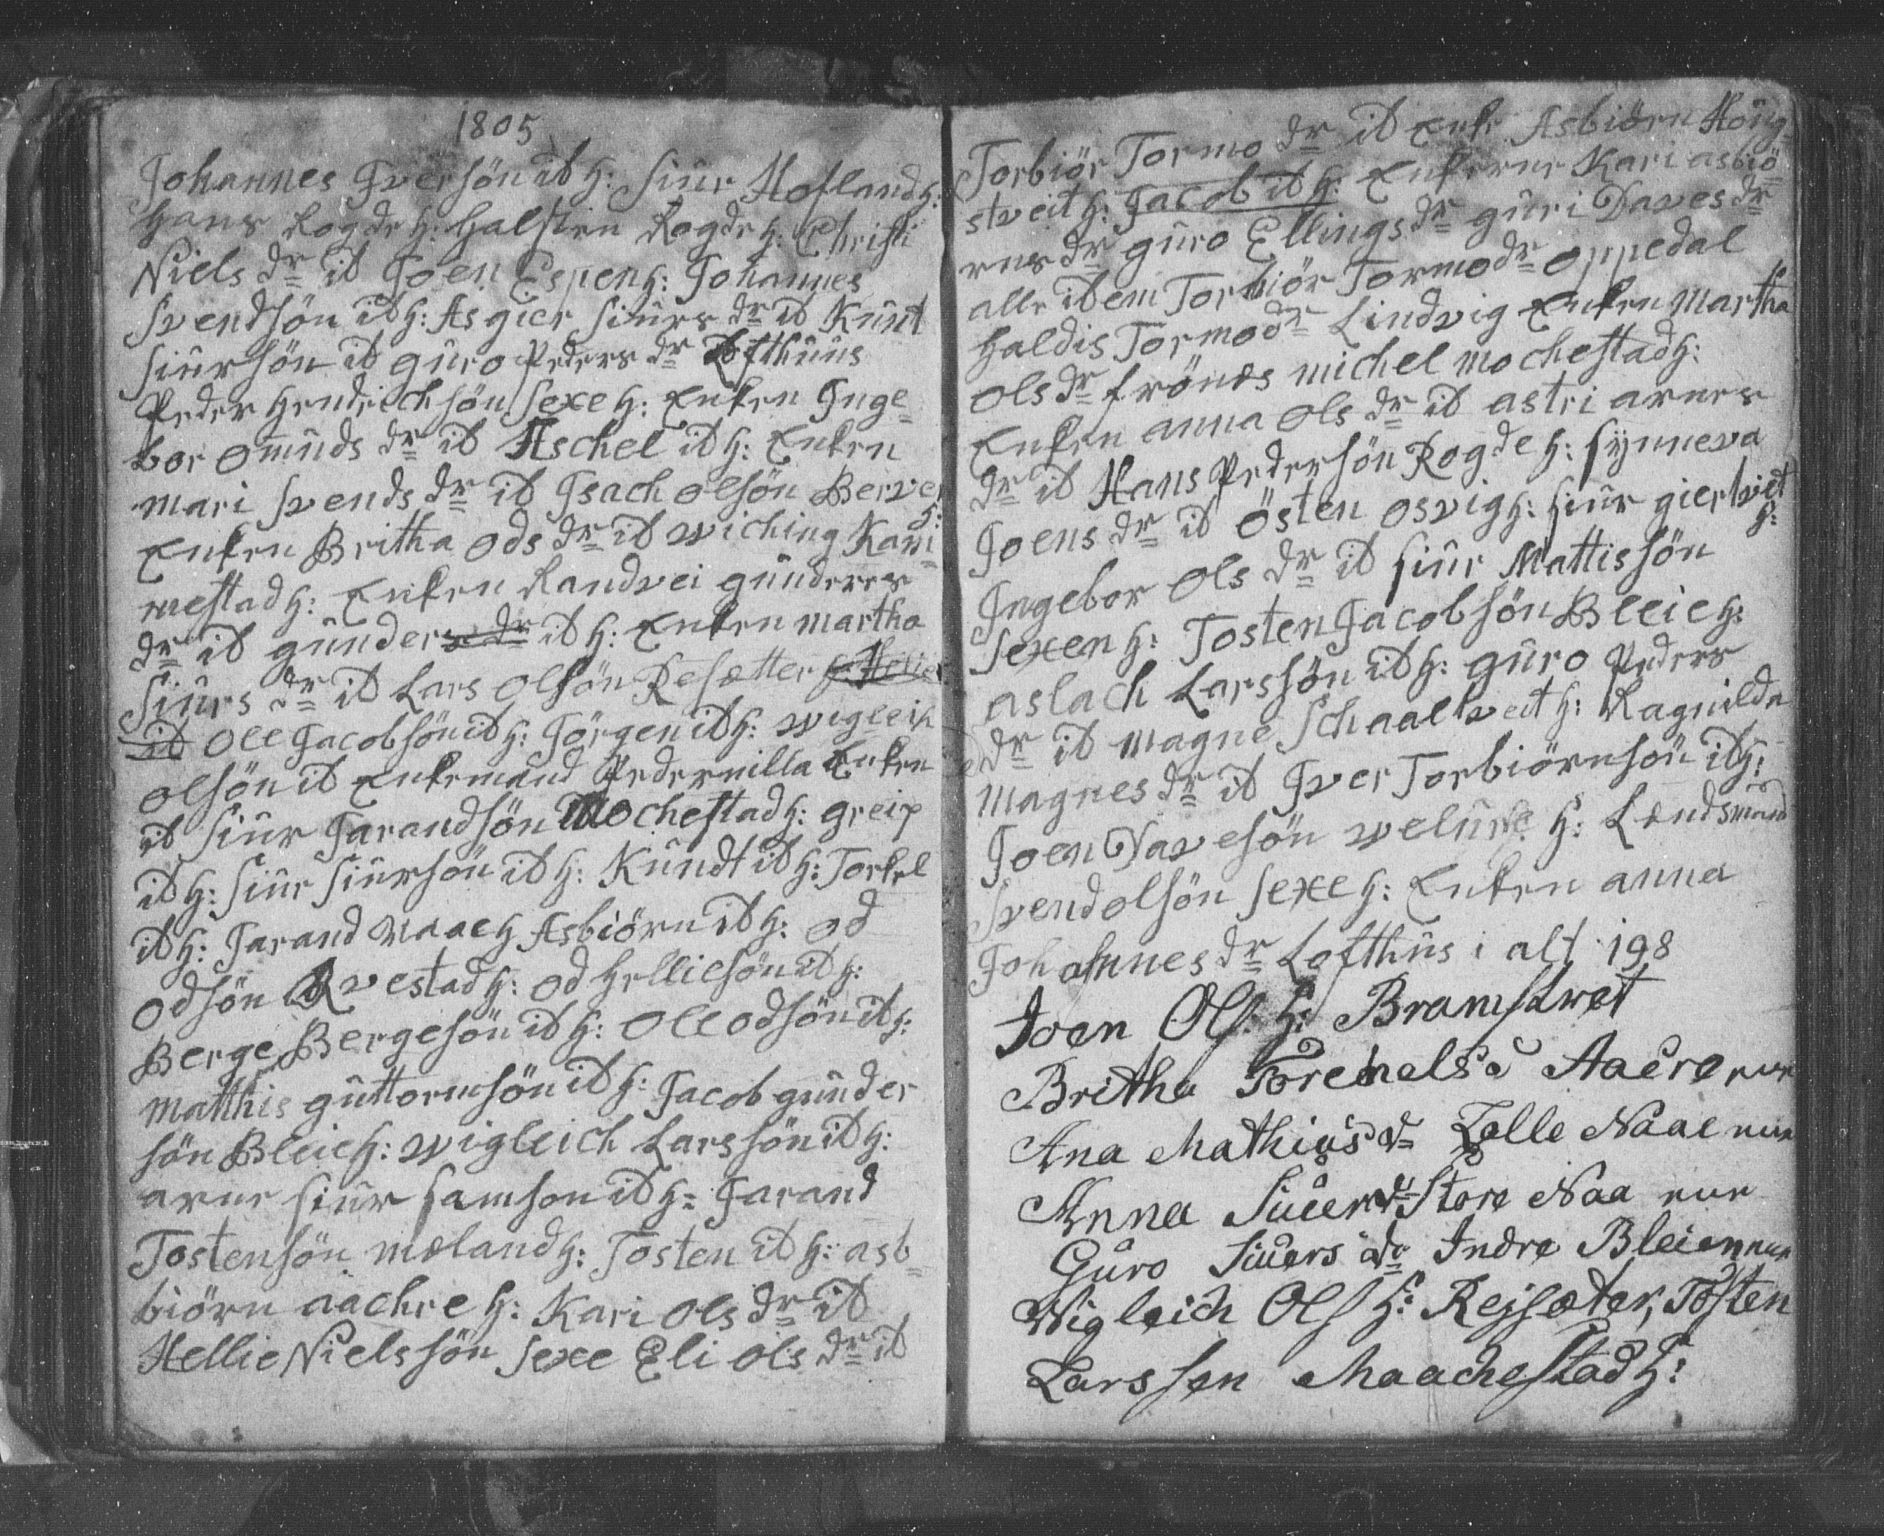 1805
Johannes Iversön it H: Siur Hofland H:
Hans Rogde H: Halsten Rogde H: Christi
Niels dr it Joen Espen H: Johannes
Svendsön it H: Asgier Siurs dr it Kunt
Siursön it guro Peders dr Lofthuus
Peder Hendrichsön Sexe H: Enken Inge-
bor omuds dr it Aschel it H: Enken
mari Svends dr it Isach olsön Berve H:
Enken Britha ods dr it wiching Kam-
mestad H: Enken Randvei gunders
dr it gunders dr it H: Enken martha
Siurs dr it Lars olsön Resætter
it ole Jacobsön it H: Jörgen it H: wigleich
olsön it Enkemand Pedernilla Enken
it Siur Jarandsön Mochestad H: greip
it H: Siur Siursön it H: Kundt it H: Torkel
it H: Jarand Naae H Asbiörn it H: od
odsön Rvestad H: od Helliesön it H:
Berge Bergesön it H: ole odsön it H:
Matthis guttormsön it H: Jacob gunder
sön Bleie H: wigleich Larssön it H:
arne Siur Samson it H: Jarand
Tostensön mæland H: Tosten it H: asb-
biörn aachre H: Kari ols dr it
Hellie Nielssön Sexe Eli ols dr it
Torbiör Tormo dr it Enk: Asbiörn Houg
stveit H: Jacob it H: Enkerne Kari asbiö-
rns dr guro Ellings dr guri Daves dr
alle item Torbiör Tormo dr oppedal
Haldis Tormo dr Lindvig Enken Martha
ols dr frönes michel mochestad H:
Enken anna ols dr it astri arnes
dr it Hans Pedersön Rogde H: Synneva
Joens dr it östen osvig H: Siur giertveit H:
Ingebor ols dr it Siur Mattissön
Sexen H: Tosten Jacobsön Bleie H:
aslach Larssön it H: guro Peders
dr it magne Schaaltveit H: Ragnilda
Magnes dr it Iver Torbiörnsön it H:
Joen Davesön welure H: Lændsmand
Svend olsön Sexe H: Enken anna
Johannes dr Lofthus i alt 198
Joen Ols: H: Bramstvet
Britha Torchels d Aaere nur
Ana Mathias dr Lolle Naae nur
Anna Siuer dr Store Naa nur
Guro Siuers dr Indre Bleien nur
Wigleich Ols H: Rejsæter, Tosten
Larssen Maachestad H: